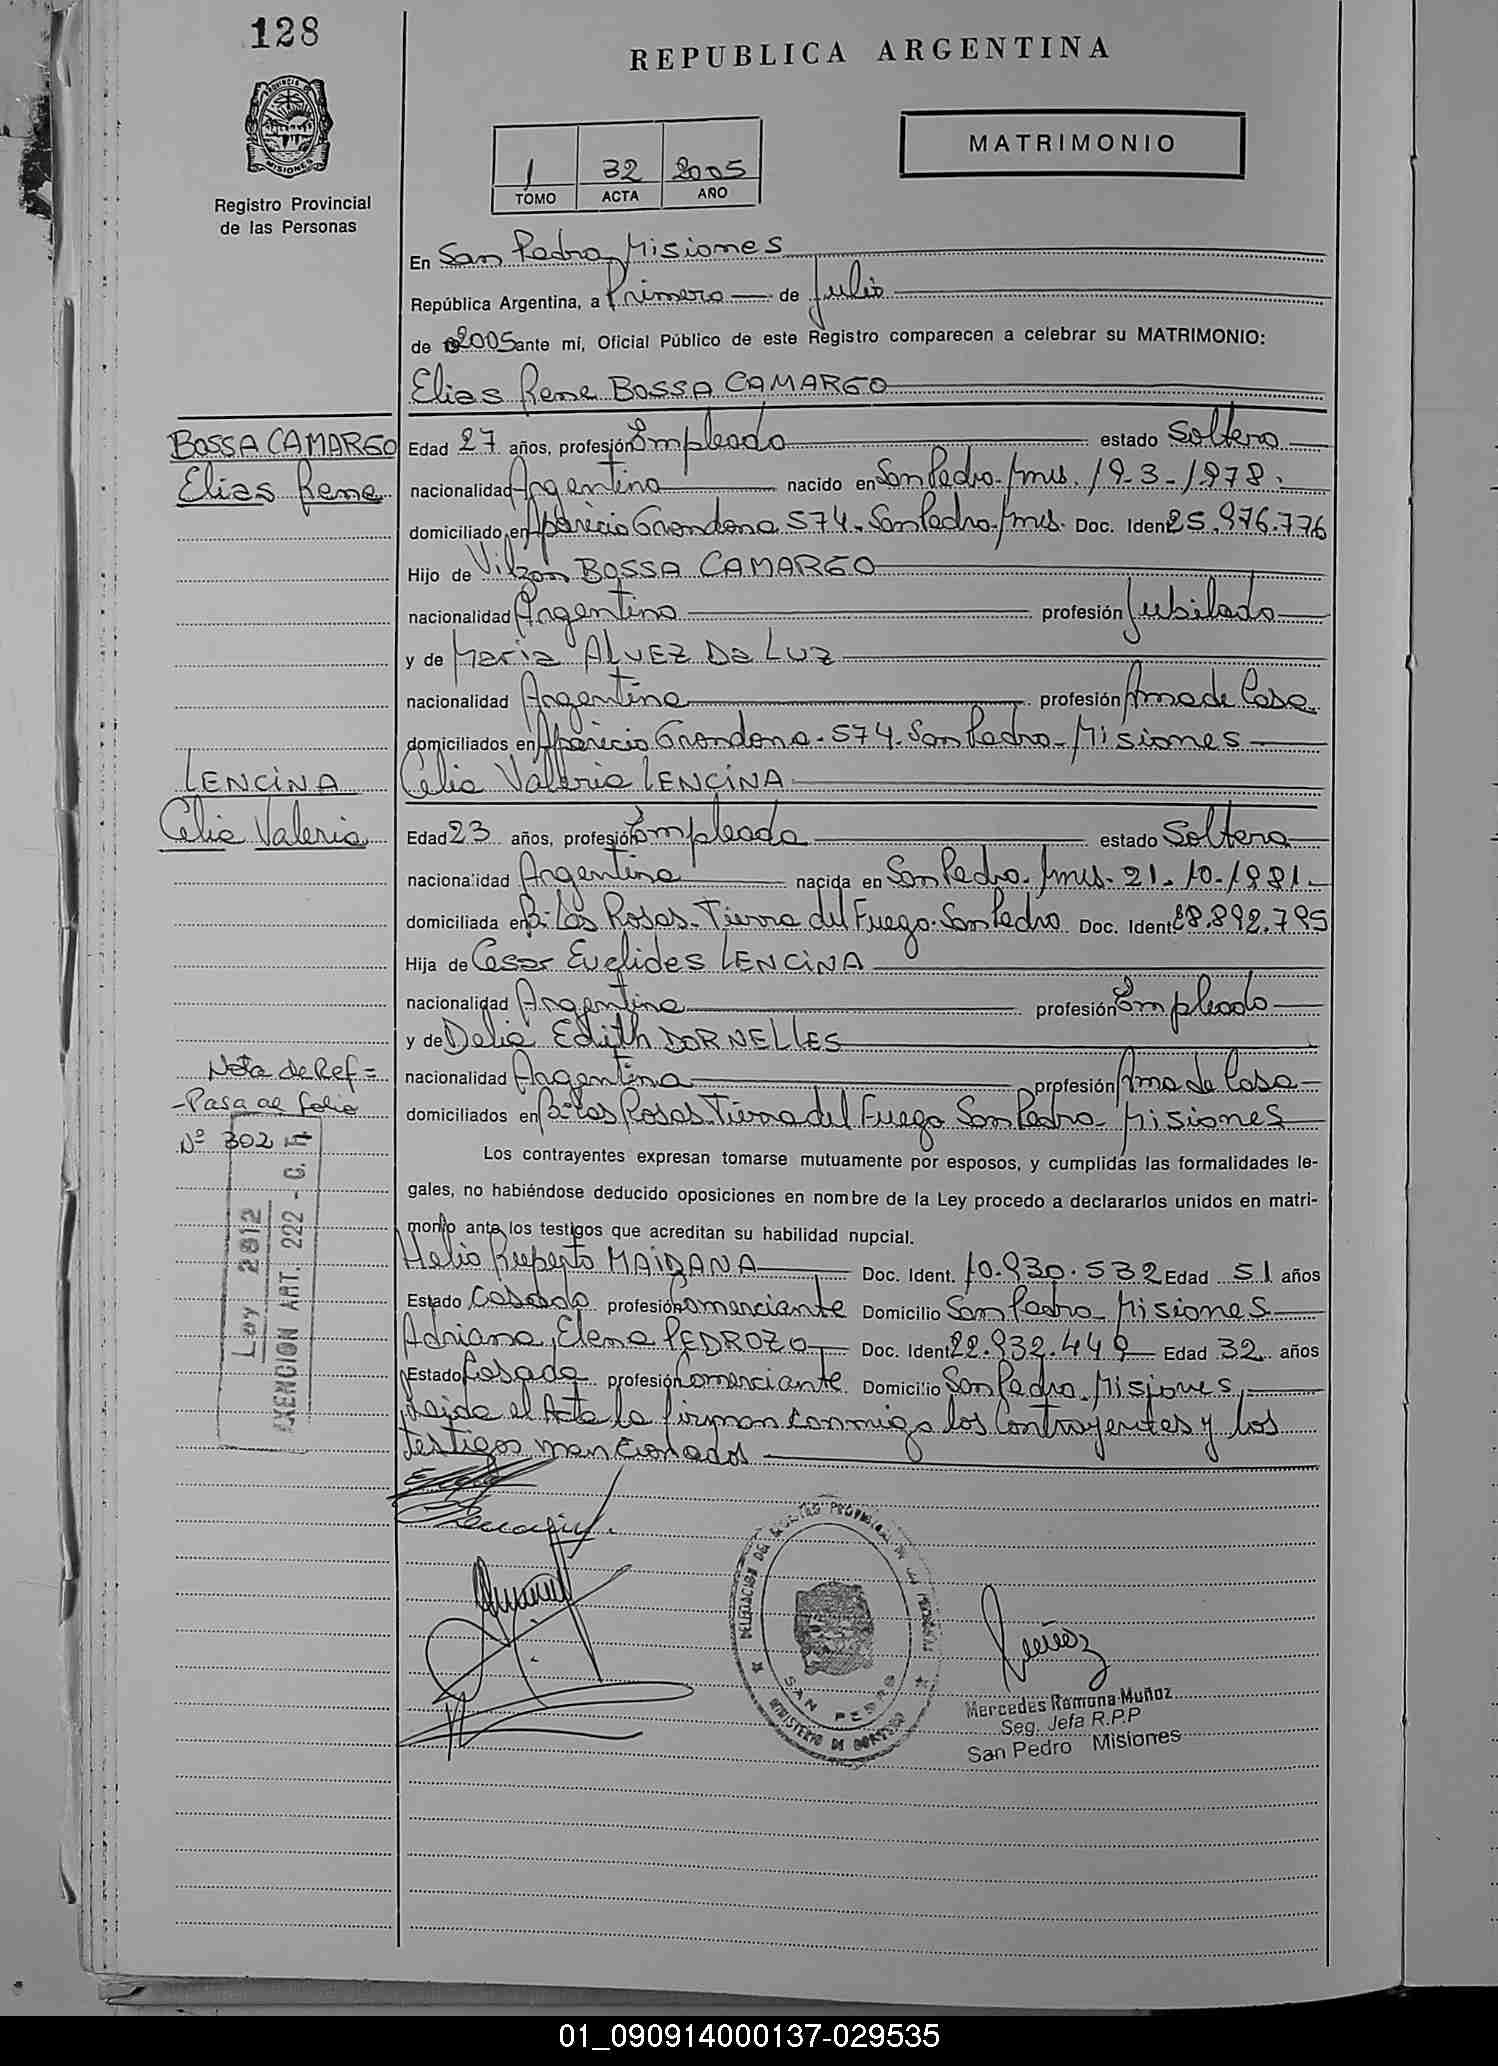 128
REPUBLICA ARGENTINA
PROVINCIA DE
MISIONES
Registro Provincial
de las Personas
1 32 2005
TOMO ACTA AÑO
MATRIMONIO
En San Pedro, Misiones
República Argentina, a Primero de Julio
de 2005 ante mí, Oficial Público de este Registro comparecen a celebrar su MATRIMONIO:
Elias Rene BOSSA CAMARGO
BOSSA CAMARGO
Elias Rene
Edad 27 años, profesión Empleado estado Soltero
nacionalidad Argentino nacido en San Pedro. Mnes. 19-3-1978.
domiciliado en Aparicio Grondona 574. San Pedro. Mnes. Doc. Ident 25.976.776
Hijo de Vilzon BOSSA CAMARGO
nacionalidad Argentino profesión Jubilado
y de Maria ALVEZ Da LUZ
nacionalidad Argentina profesión Ama de Casa
domiciliados en Aparicio Grondona - 574. San Pedro - Misiones
LENCINA
Celia Valeria
Celia Valeria LENCINA
Edad 23 años, profesión Empleada estado Soltera
nacionalidad Argentina nacida en San Pedro. Mnes. 21-10-1981.-
domiciliada en Bº Las Rosas. Tierra del Fuego. San Pedro. Doc. Ident 28.892.795
Hija de Cesar Euclides LENCINA
nacionalidad Argentina profesión Empleado
y de Delia Edith DORNELLES
nacionalidad Argentina profesión Ama de Casa
domiciliados en Bº Las Rosas. Tierra del Fuego San Pedro - Misiones
Nota de Ref =
- Pasa al folio
Nº 302
Ley 2812
EXENCION ART. 222 - C. F.
Los contrayentes expresan tomarse mutuamente por esposos, y cumplidas las formalidades le-
gales, no habiéndose deducido oposiciones en nombre de la Ley procedo a declararlos unidos en matri-
monio ante los testigos que acreditan su habilidad nupcial.
Helio Ruperto MAIDANA Doc. Ident. 10.930.532 Edad 51 años
Estado Casado profesión Comerciante Domicilio San Pedro - Misiones
Adriana Elena PEDROZO Doc. Ident 22.932.449 Edad 32 años
Estado Casada profesión Comerciante Domicilio San Pedro. Misiones,
leida el Acta la firman conmigo los Contrayentes y los
testigos mencionados
DELEGACION DEL REGISTRO PROVINCIAL DE LAS PERSONAS
SAN PEDRO
MINISTERIO DE GOBIERNO
Muñoz
Mercedes Ramona Muñoz
Seg. Jefa R.P.P
San Pedro Misiones
01_090914000137-029535